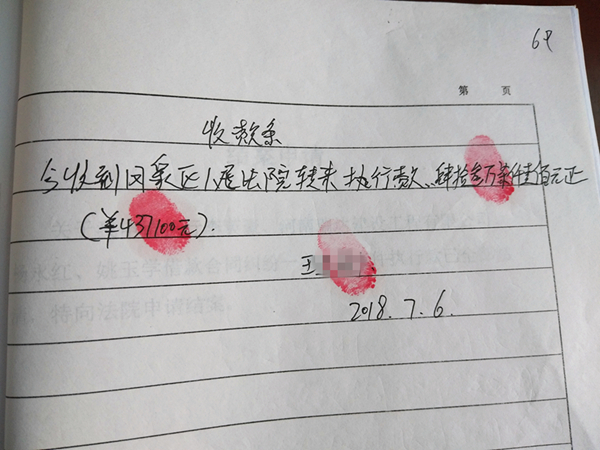 第 页
收款条
今收到区人民法院转来执行款:肆拾叁万柒仟壹佰元正
(¥437100元).
水红、姚玉学借款合同纠纷一
王
特向法院申请结案.
2018.7.6.